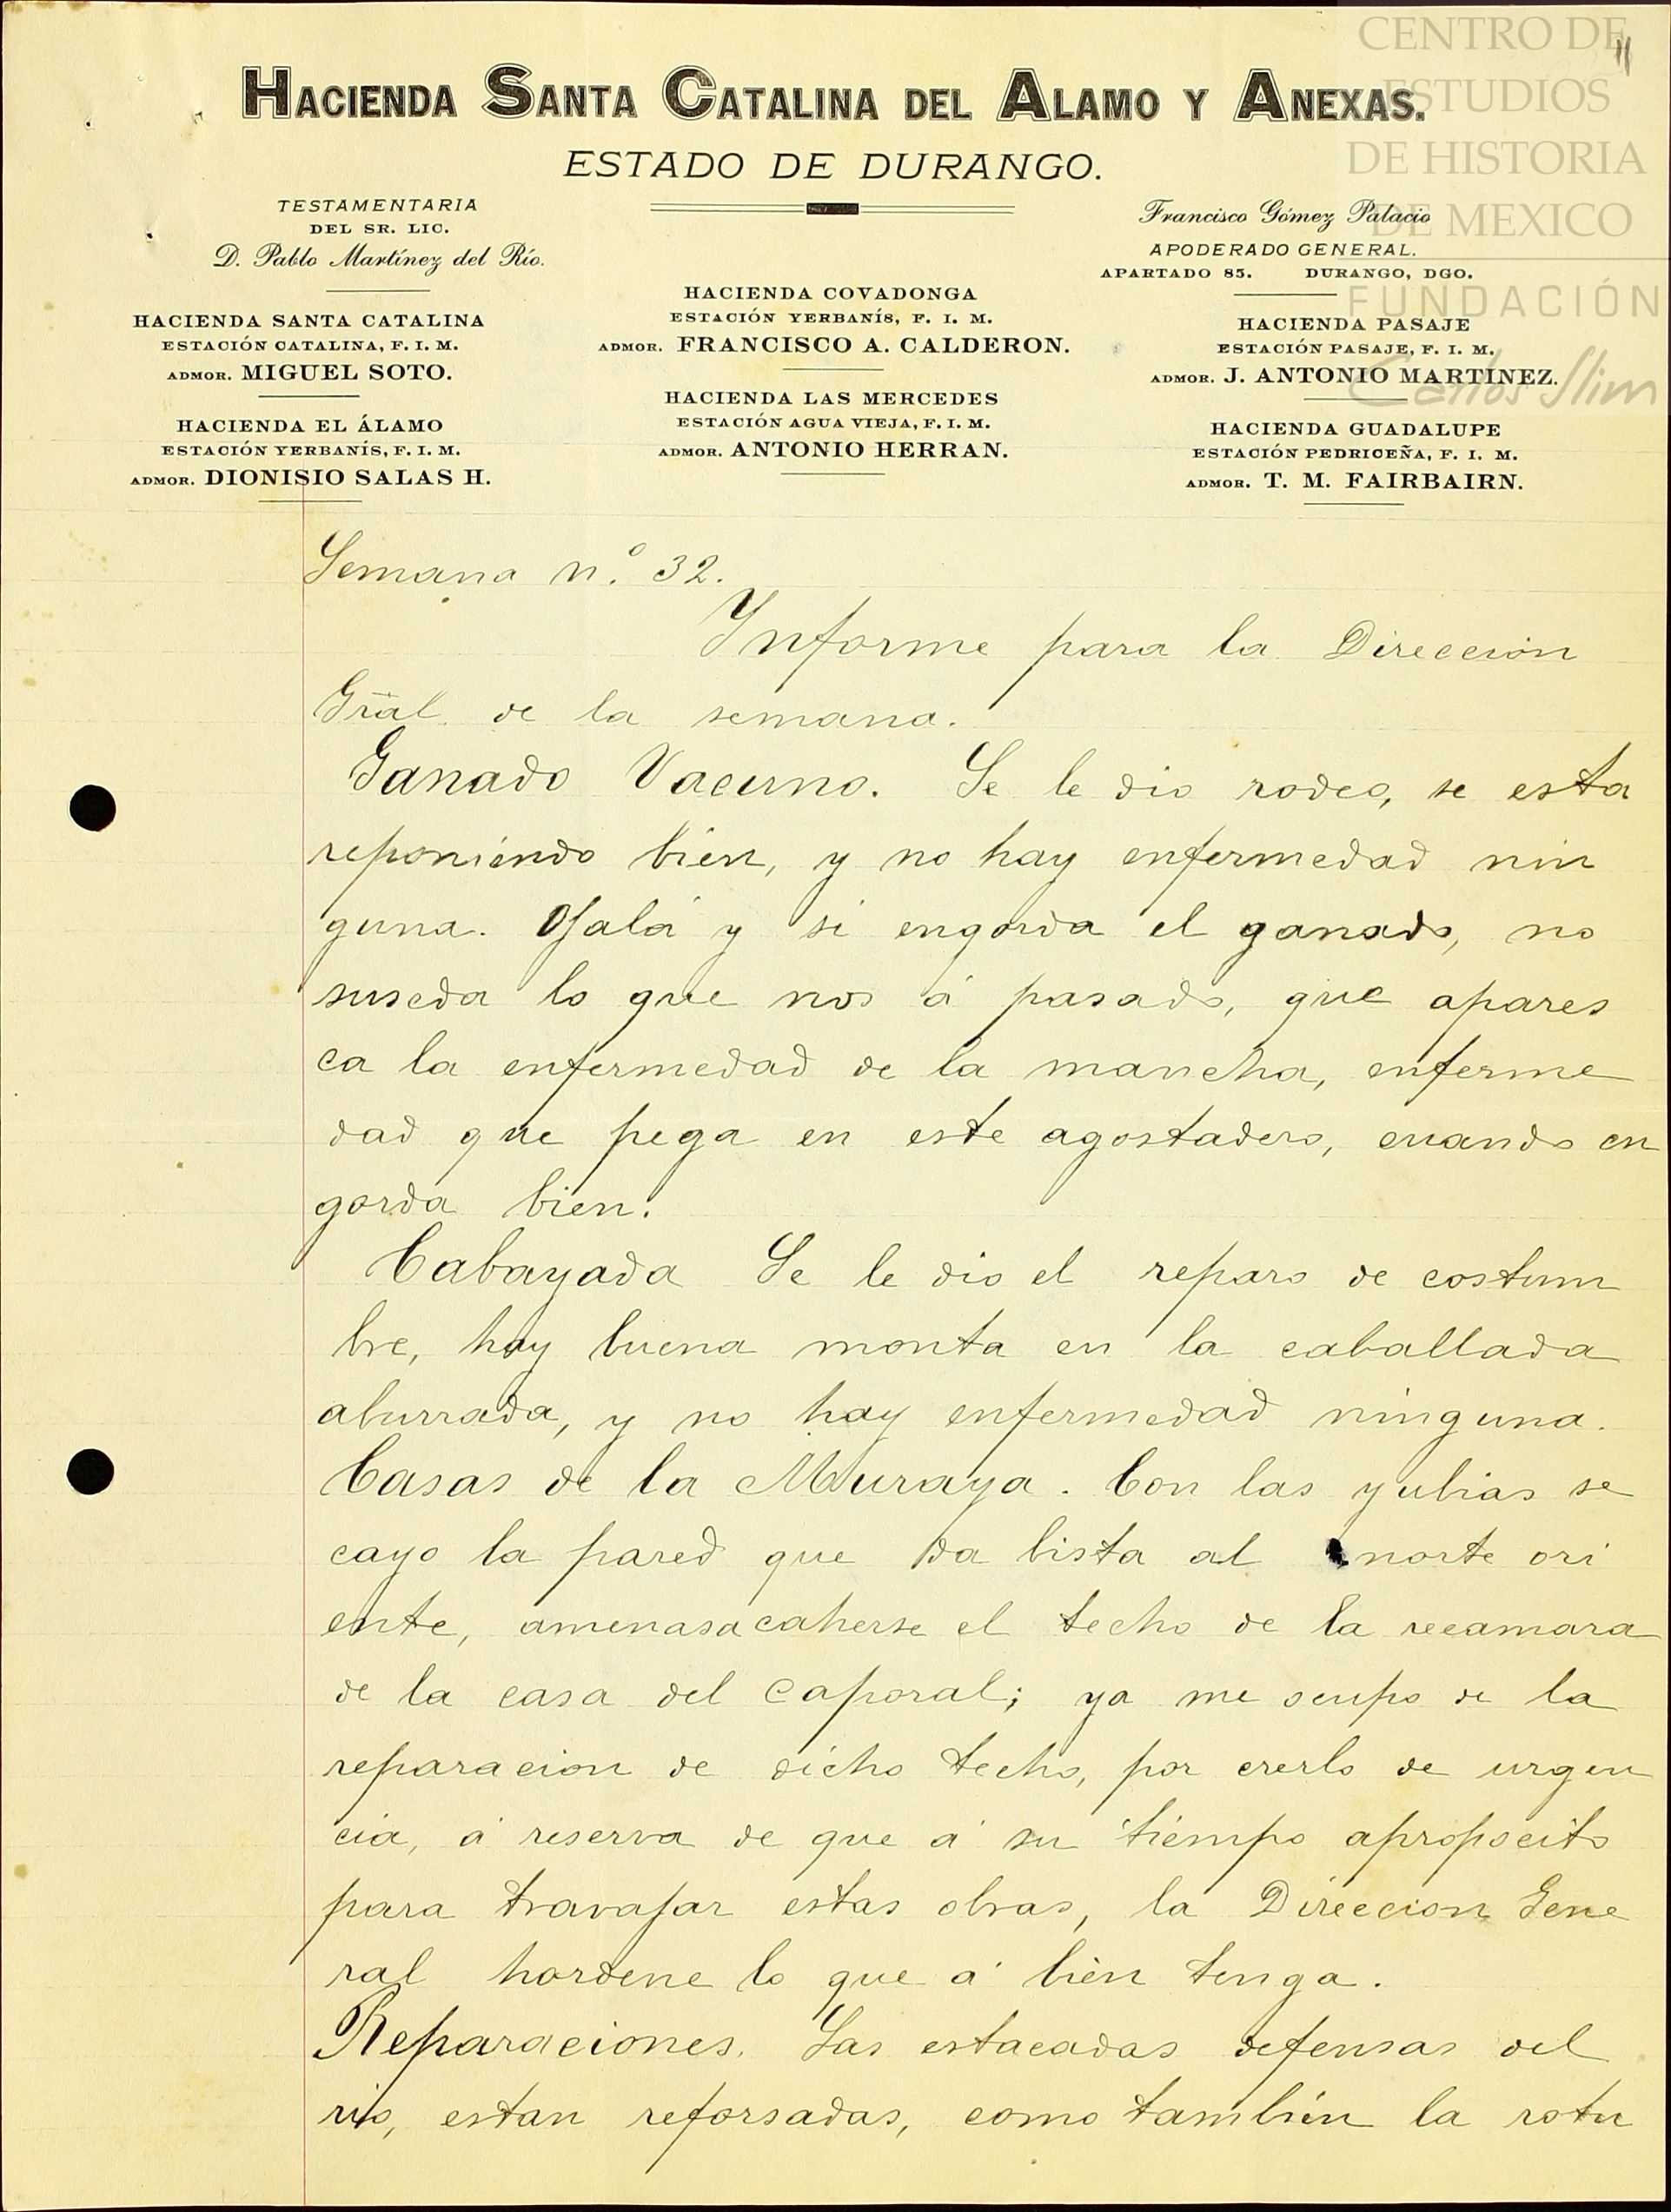 CENTRO DE
ESTUDIOS
DE HISTORIA
DE MEXICO
FUNDACIÓN
Carlos Slim
11
HACIENDA SANTA CATALINA DEL ALAMO Y ANEXAS.
ESTADO DE DURANGO.
TESTAMENTARIA
DEL SR. LIC.
D. Pablo Martínez del Río.
HACIENDA SANTA CATALINA
ESTACIÓN CATALINA, F. I. M.
ADMOR. MIGUEL SOTO.
HACIENDA EL ÁLAMO
ESTACIÓN YERBANÍS, F. I. M.
ADMOR. DIONISIO SALAS H.
HACIENDA COVADONGA
ESTACIÓN YERBANÍS, F. I. M.
ADMOR. FRANCISCO A. CALDERON.
HACIENDA LAS MERCEDES
ESTACIÓN AGUA VIEJA, F. I. M.
ADMOR. ANTONIO HERRAN.
Francisco Gómez Palacio
APODERADO GENERAL.
APARTADO 85. DURANGO, DGO.
HACIENDA PASAJE
ESTACIÓN PASAJE, F. I. M.
ADMOR. J. ANTONIO MARTÍNEZ.
HACIENDA GUADALUPE
ESTACIÓN PEDRICEÑA, F. I. M.
ADMOR. T. M. FAIRBAIRN.
Semana n.º 32.
Ynforme para la Direccion
Gral. de la semana.
Ganado Vacuno. Se le dio rodeo, se esta
reponiendo bien, y no hay enfermedad nin
guna. Ojalá y si engorda el ganado, no
suseda lo que nos á pasado, que apares
ca la enfermedad de la mancha, enferme
dad que pega en este agostadero, cuando en
gorda bien.
Cabayada Se le dio el reparo de costum
bre, hay buena monta en la caballada
aburrada, y no hay enfermedad ninguna.
Casas de la Muraya. Con las yubias se
cayo la pared que da bista al norte ori
ente, amenasa caherse el techo de la recamara
de la casa del caporal; ya me ocupo de la
reparacion de dicho techo, por crerlo de urgen
cia, á reserva de que á su tiempo apropocito
para travajar estas obras, la Direccion Gene
ral hordene lo que á bien tenga.
Reparaciones. Las estacadas defensas del
rio, estan reforsadas, como tambien la rotu